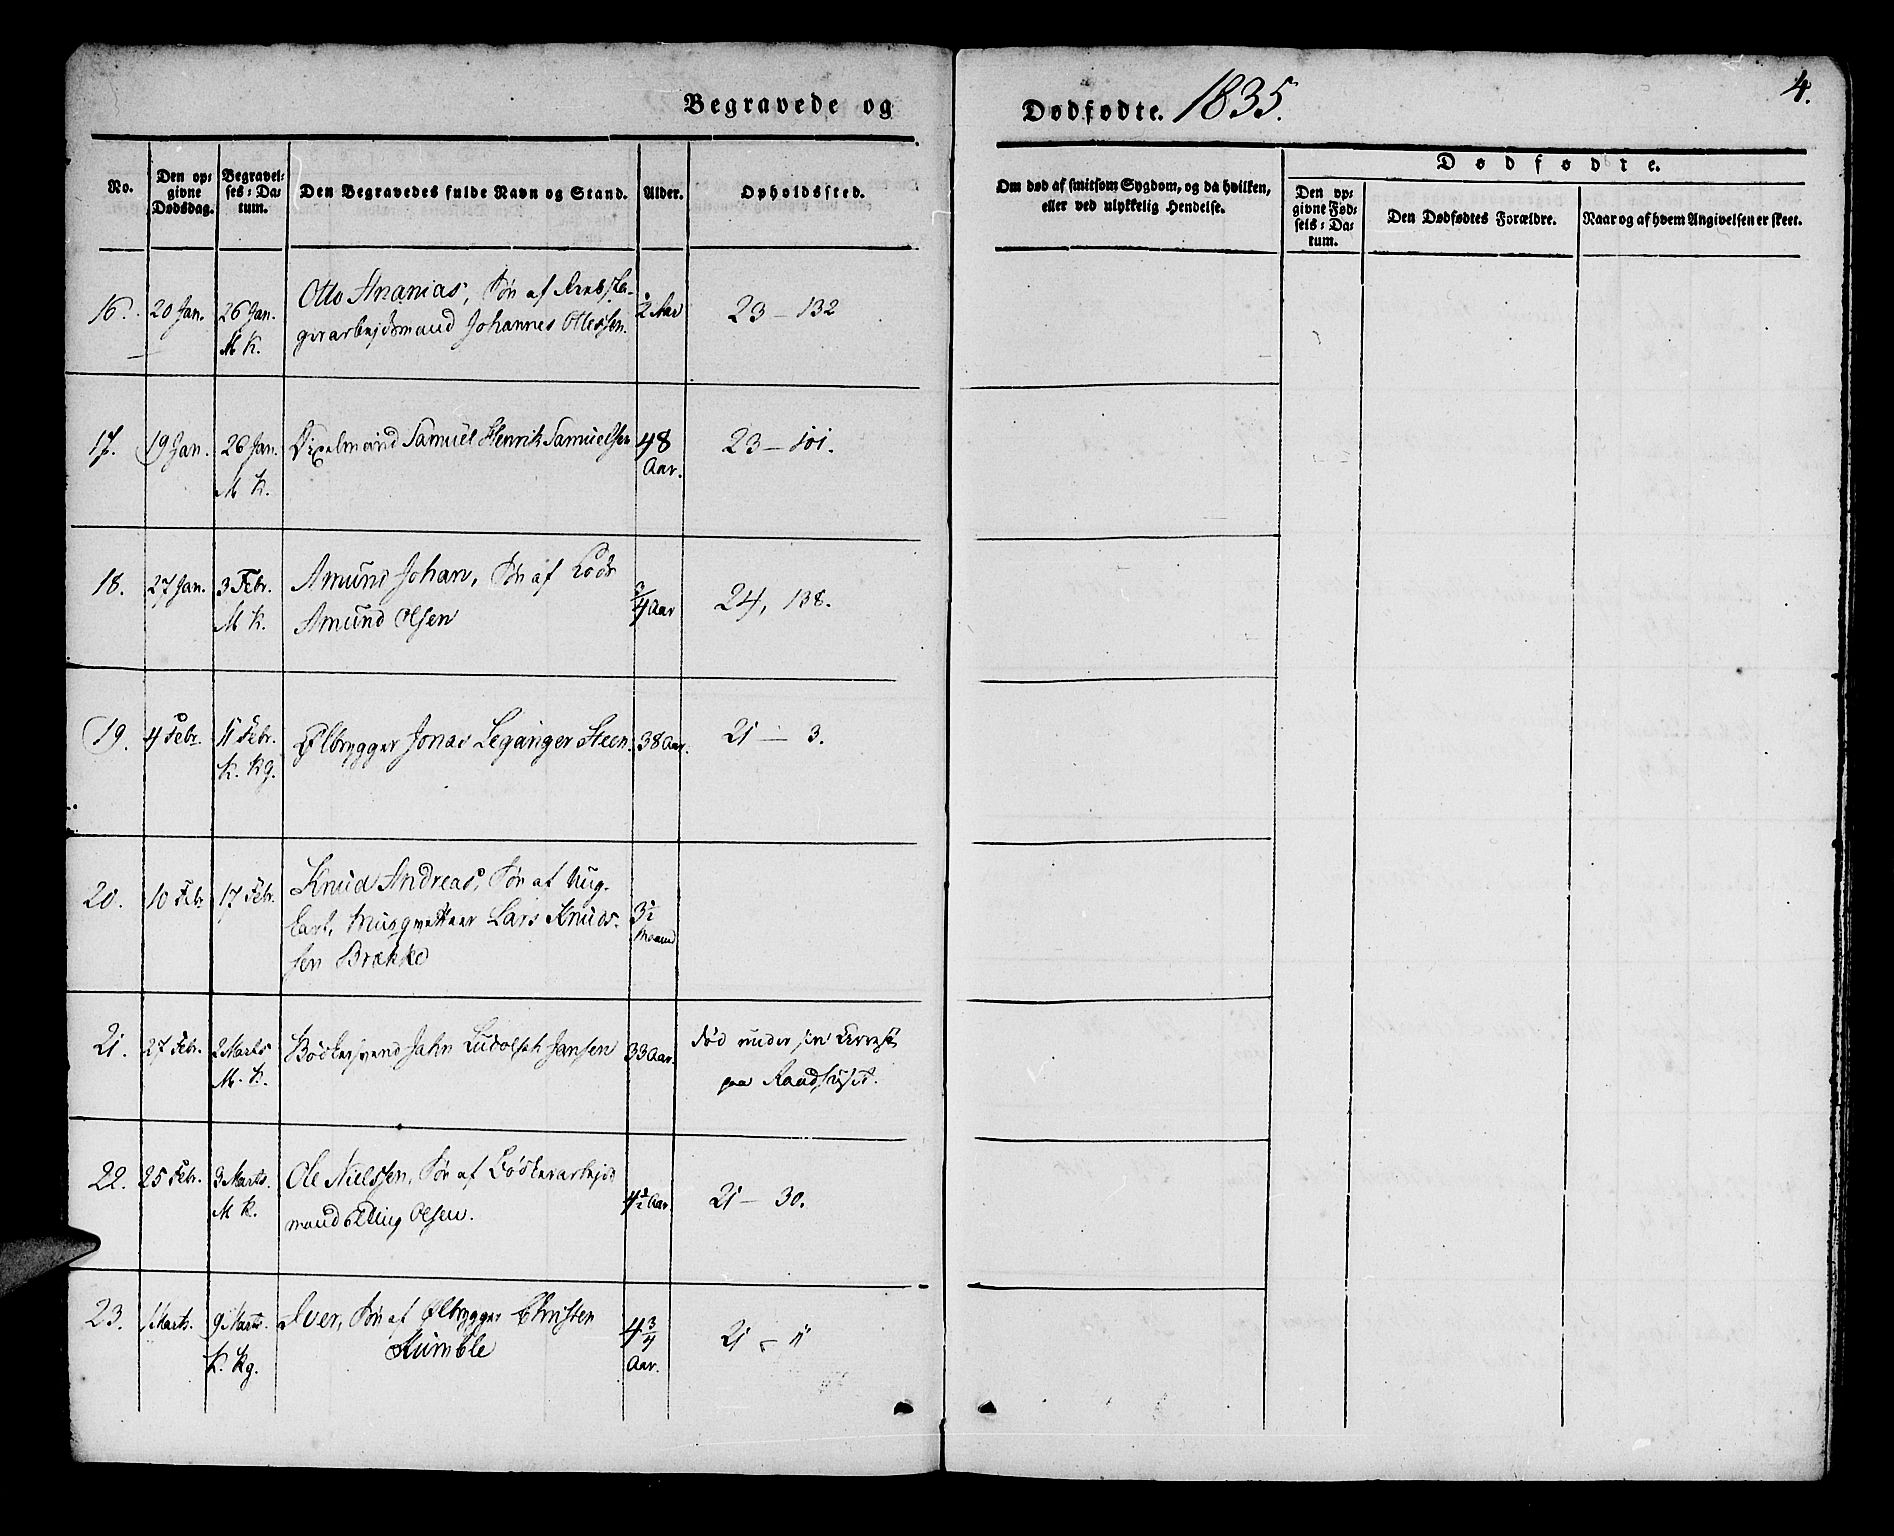 Begravede og
Dødfødte. 1835.
4.
No.
Den op-
givne
Dødsdag.
Begravel-
ses-Da-
tum.
Den Begravedes fulde Navn og Stand.
Alder.
Opholdssted.
Om død af smitsom Sygdom, og da hvilken,
eller ved ulykkelig Hendelse.
Dødfødte.
Den op-
givne Fød-
sels-Da-
tum.
Den Dødfødtes Forældre.
Naar og af hvem Angivelsen er skeet.
16. 20 Jan. 26 Jan. M K.
Otto Ananias, Søn af
Johannes Ottessen.
2 Aar
23 – 132
17. 19 Jan. 26 Jan. M K.
Samuel Henrik Samuelsen
48 Aar.
23 – 101.
18. 27 Jan. 3 Febr. M K.
Amund Johan, Søn af Lods
Amund Olsen
3/4 Aar
24, 138.
19. 4 Febr. 11 Febr. K. Kg.
Ølbrygger Jonas Leganger Steen.
38 Aar.
21 – 3.
20. 10 Febr 17 Febr.
Knud Andreas, Søn af Nug-
Musqvetteer Lars Knuds-
sen Brække
3 1/2 Maaned
21. 27 Febr. 2 Marts M. K.
Bødkersvend Jahn Ludolph Jansen
33 Aar.
død under sin Arrest
paa Raadhuset.
22. 25 Febr. 3 Marts. M K.
Ole Nielssen, Søn af Bødkerarbeids
mand Elling Olsen.
4 1/2 Aar
21 – 30.
23. 1 Marts. 9 Marts. K. Kg.
Iver, Søn af Ølbrygger Christen
Kumble
4 3/4 Aar.
21 – 11